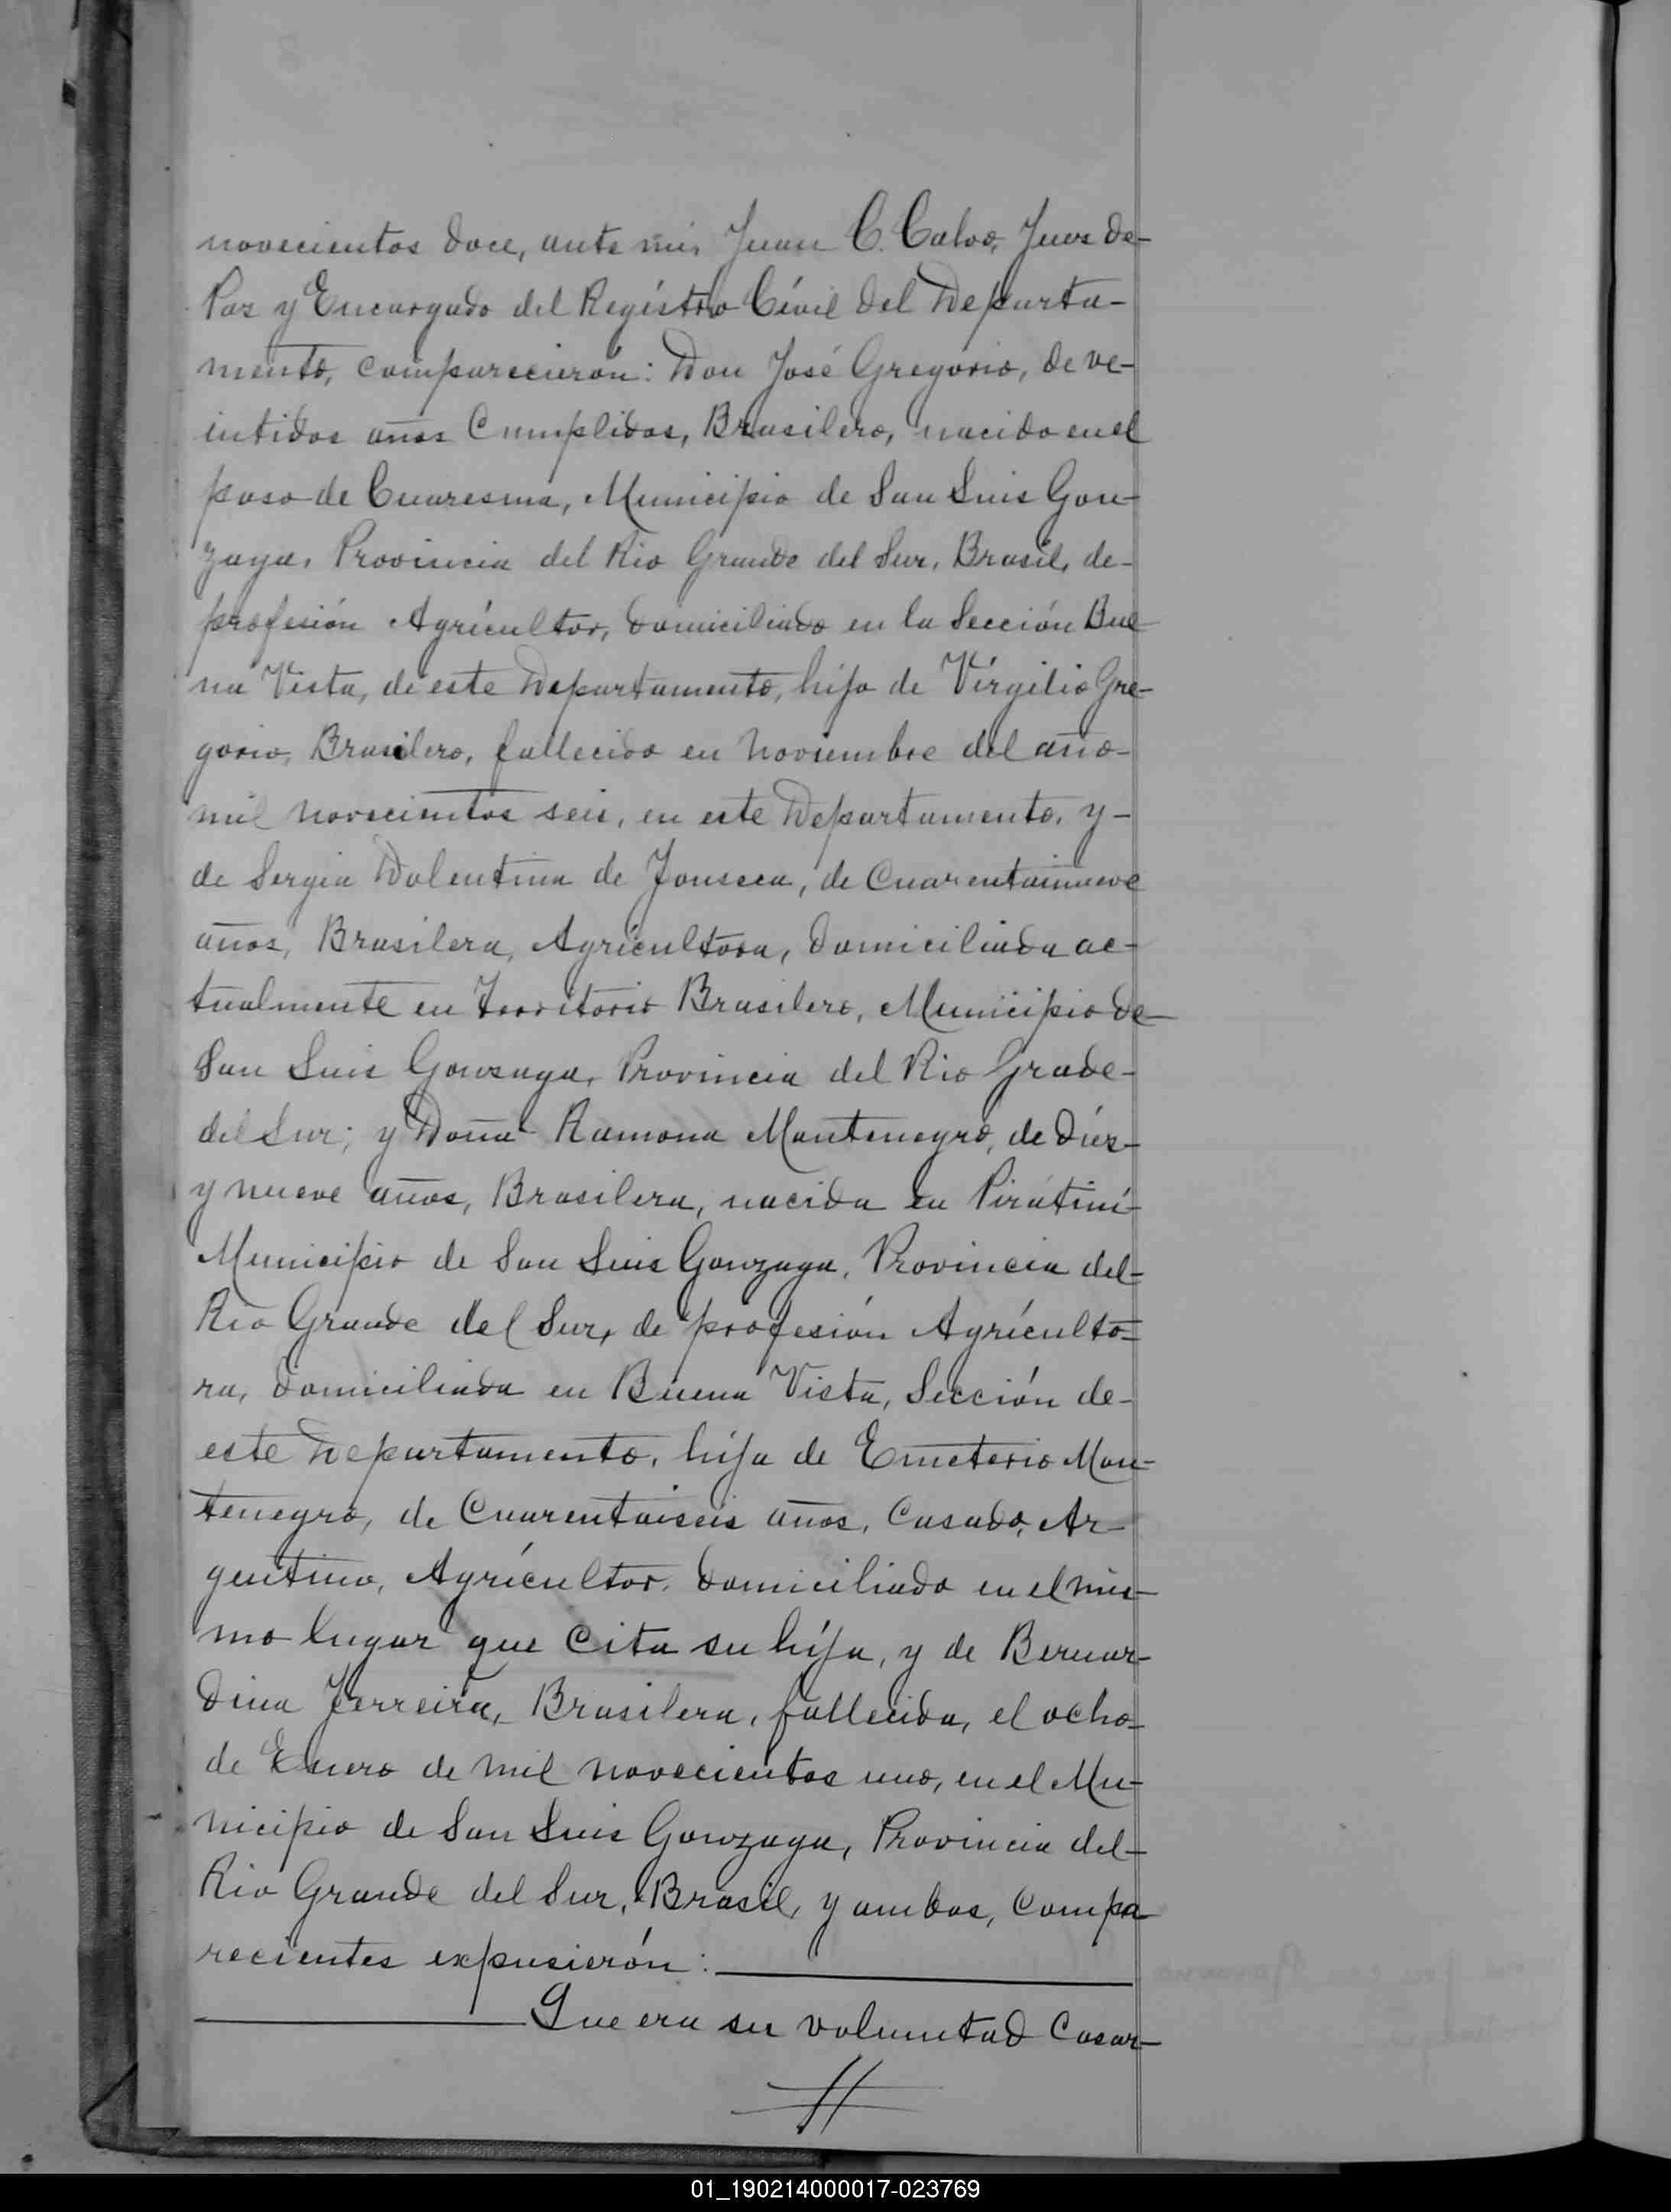 novecientos doce, ante mi, Juan C. Calvo, Juez de-
Paz y Encargado del Regístro Cívil del Departa-
mento, comparecierón: Don José Gregorio, de ve-
intidos años Cumplidos, Brasilero, nacido en el
paso de Cuaresma, Municipio de San Luis Gon-
zaga, Provincia del Rio Grande del Sur, Brasil, de-
profesión Agrícultor, domiciliado en la Sección Bue
na Vista, de este Departamento, hijo de Vírgilio Gre-
gorio, Brasilero, fallecido en Noviembre del año-
mil novecientos seis, en este Departamento, y-
de Sergia Dolentina de Fonseca, de Cuarentainueve
años, Brasilera, Agrícultora, domiciliada ac-
tualmente en Territorio Brasilero, Municipio de-
San Luis Gonzaga, Provincia del Rio Grade-
del Sur; y Doña Ramona Montenegro, de díez-
y nueve años, Brasilera, nacida en Piratiní-
Municipio de San Luis Gonzaga, Provincia del-
Rio Grande del Sur, de profesión Agrículto-
ra, domiciliada en Buena Vista, Sección de-
este Departamento, hija de Emeterio Mon-
tenegro, de Cuarentaiseis años, Casado, Ar-
gentino, Agrícultor, domiciliado en el mis-
mo lugar que Cita su hija, y de Bernar-
dina Ferreira, Brasilera, fallecida, el ocho-
de Enero de mil novecientos uno, en el Mu-
nicipio de San Luis Gonzaga, Provincia del-
Rio Grande del Sur, Brasil, y ambos, Compa-
recientes expusierón:
Que era su voluntad Casar-
//
01_190214000017-023769